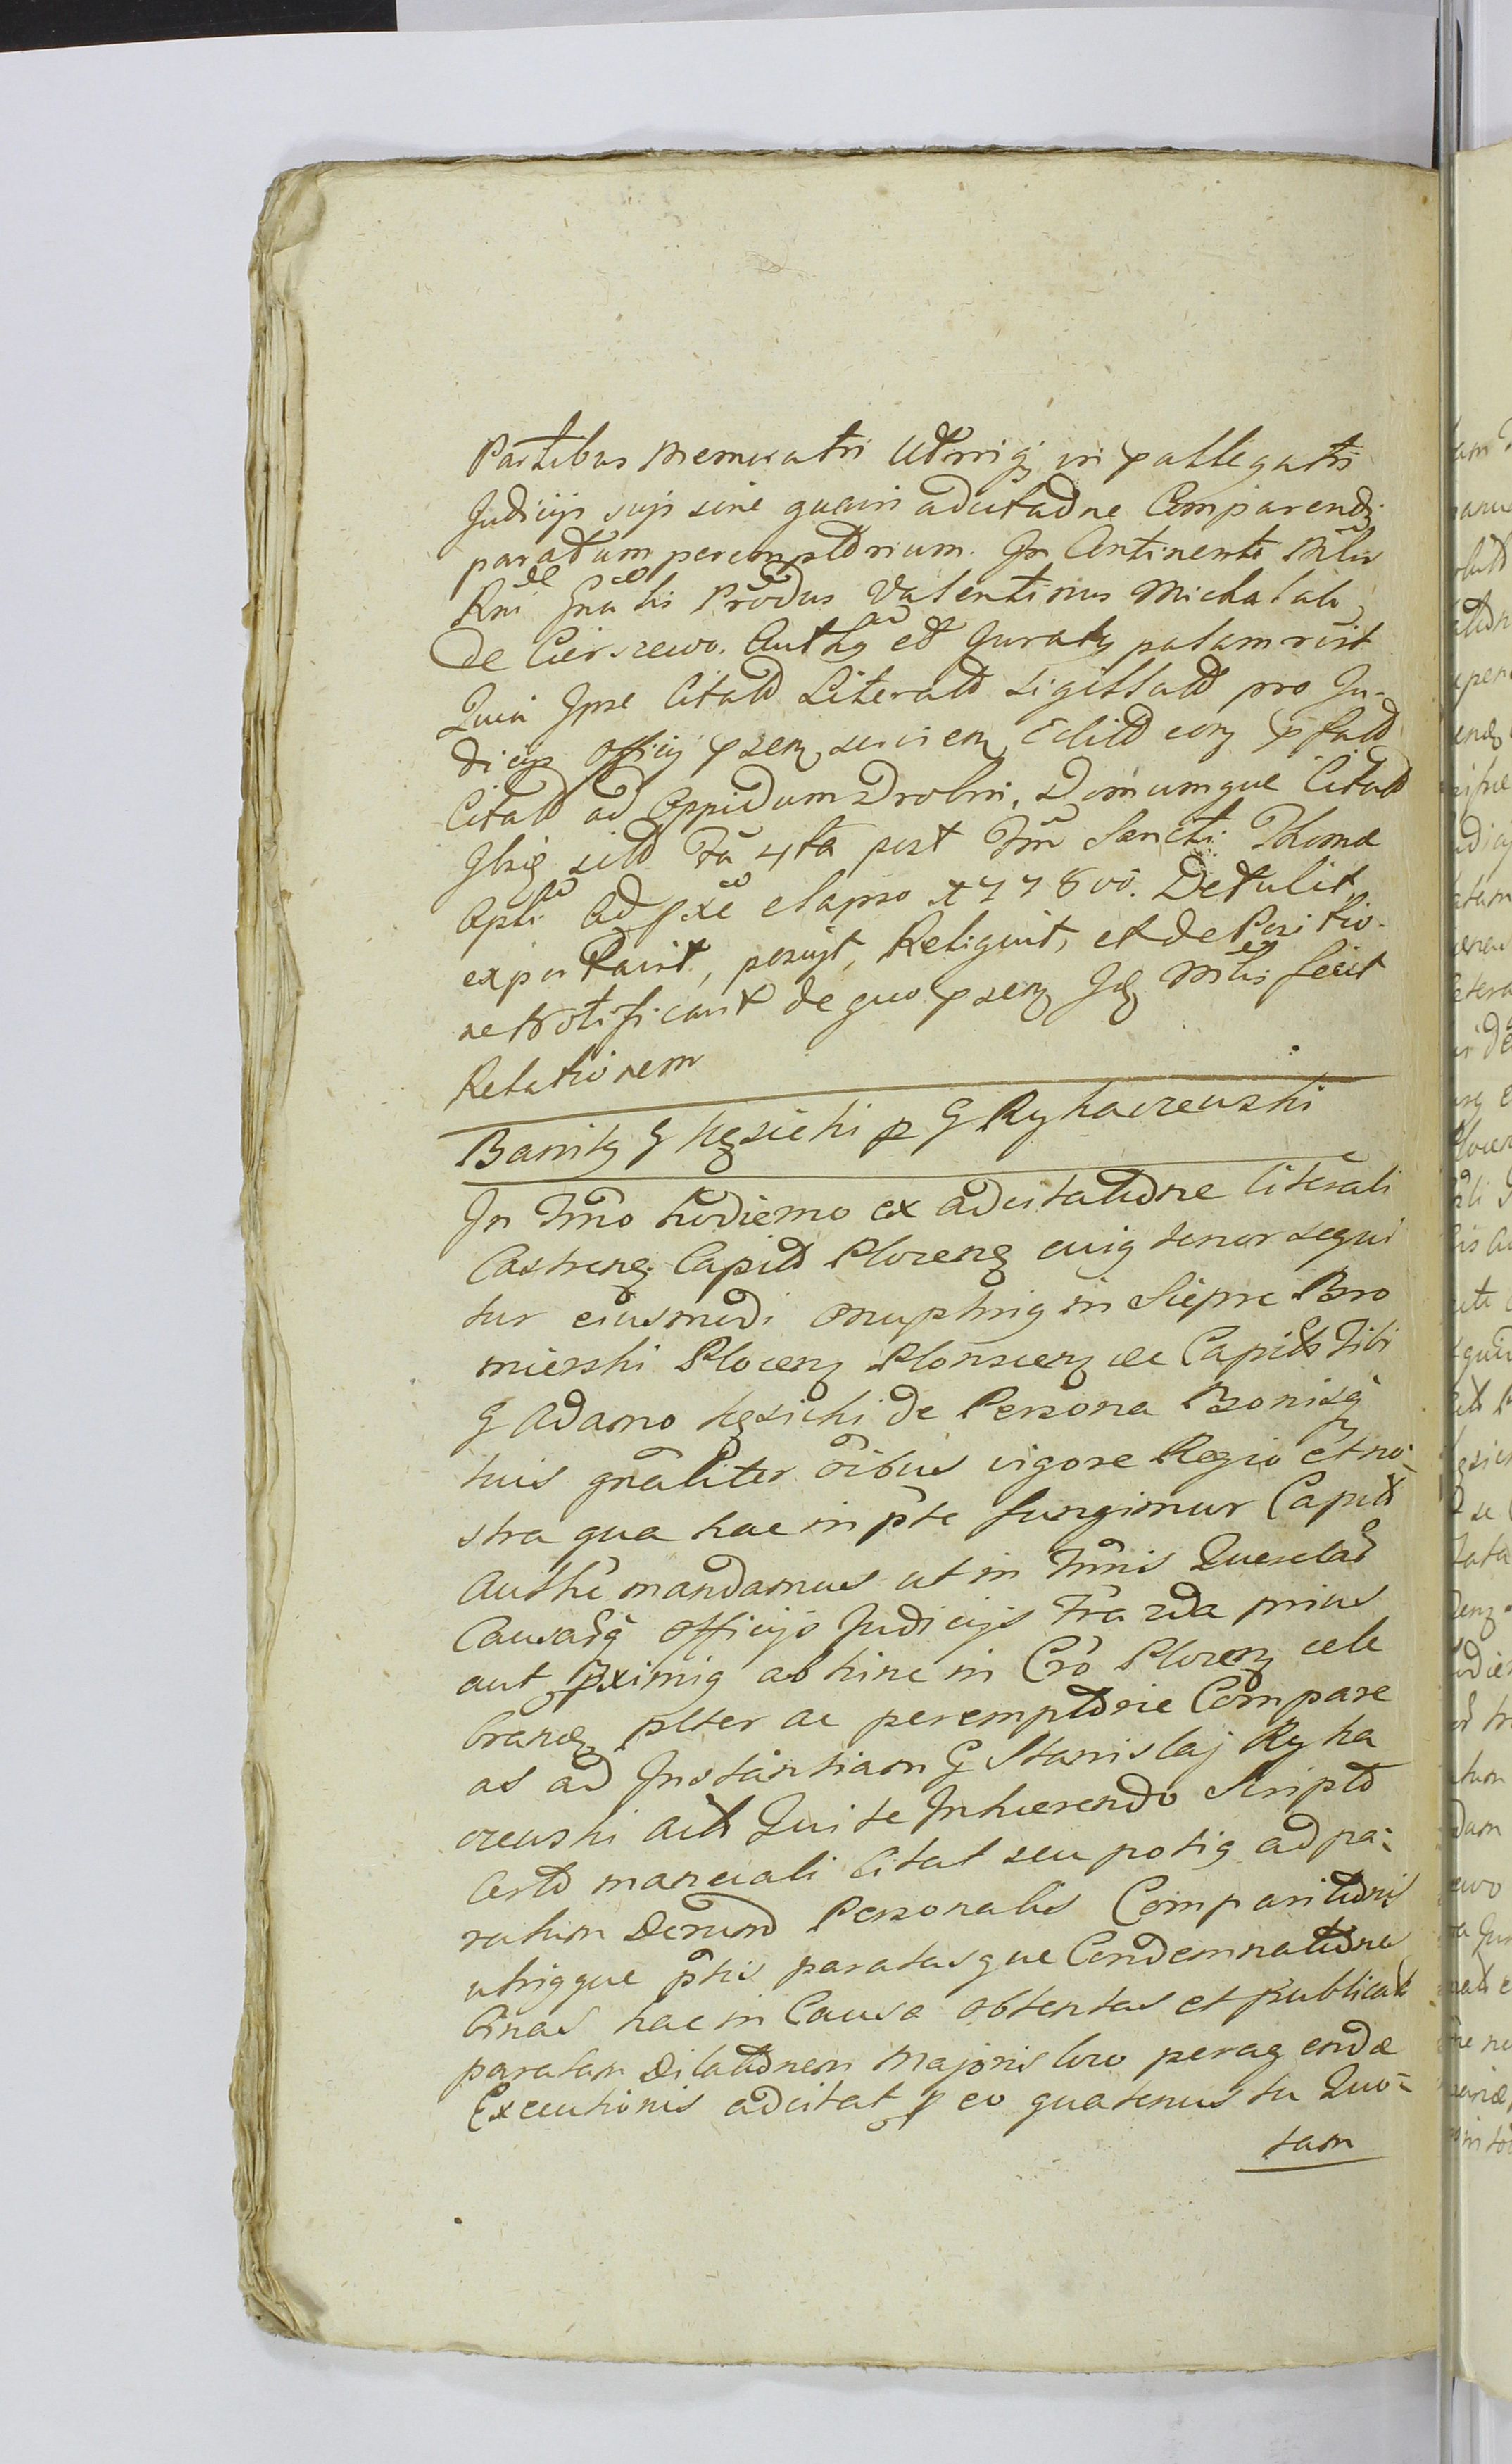 Partibus memoratis Utrisq in pallegatis
Judicijs suis sine quavis adcitadne Comparendi
paratum peremptorium. In Continenti Mlis
Rni Gnalis Produs Valentinus Michalak
de Cierszewo. Authg et Juratg palam rist
Quia Ipse Citatt Literatt sigillatt pro Ju-
dicijs Officij psenz servienz Edidd conz pfatt
Citatt ad Oppidum Drobni, Domumque Citatt
Ibiq sitt Fa 4ta post Fm Sancti Thomæ
Apli ad pxe elapso 1778vo. Detulit,
exportavit, posuit, Reliquit, et de Positio-
ne Notificavit de quo psenz Idz Mlis fecit
Relationem
Banitg G Kęsicki p G Rykaczewski
In Tmno hodierno ex adcitatidne literali
Castrenz Capitt Plocenz cuig tenor sequi
tur eiusmodi Onuphrig in Siepre Bro
mierski Plocenz Plonscenz &c Capitts Tibi
G Adamo Kęsicki de Persona Bonisq
tuis gnaliter oibus vigore Regia et no-
stra qua hac in pte fungimur Capitt
Authe mandamus ut in Tmnis Querelar
Causarq Officijs Judicijs Fra 2da prius
aut pximig abhinc in Cro Plocenz cele
brandz plter ac peremptorie Compare
as ad Instantiam G Stanislaj Ryka
czewski Actt Qui te Inhærendo Scriptd
Certd manuali Citat seu potig ad pa-
ratum Personalis Comparitidnis
utriqque ptis paratasque Condemnatidnes
binas hac in Causa obtentas et publicatt
paratam Dilatidnem Majoris loco peragendæ
Executionis adcitat p eo quatenus tu Quo-
tam